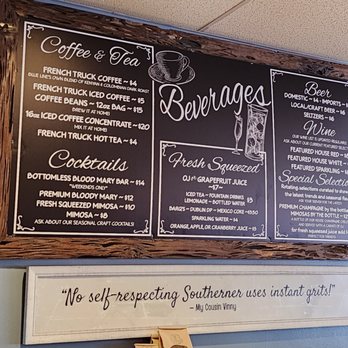 Coffee & Tea
FRENCH TRUCK COFFEE ~ $4
FRENCH TRUCK ICED COFFEE ~ $5
COFFEE BEANS ~ 12oz BAG ~ $15
BREW IT AT HOME!
16oz ICED COFFEE CONCENTRATE ~ $20
MIX IT AT HOME!
FRENCH TRUCK HOT TEA ~ $4
Cocktails
BOTTOMLESS BLOODY MARY BAR ~ $14
*WEEKENDS ONLY*
PREMIUM BLOODY MARY ~ $12
FRESH SQUEEZED MIMOSA ~ $10
MIMOSA ~ $8
ASK ABOUT OUR SEASONAL CRAFT COCKTAILS
Beverages
Fresh Squeezed
OJ or GRAPEFRUIT JUICE
ICED TEA ~ FOUNTAIN DRINKS
LEMONADE ~ BOTTLED WATER
BARQ'S ~ DUBLIN DP ~ MEXICO COKE
SPARKLING WATER ~ $4
ORANGE, APPLE, OR CRANBERRY JUICE ~ $5
Beer
DOMESTIC ~ $4 - IMPORTS ~
LOCAL/CRAFT BEER ~
SELTZERS ~
Wine
OUR WINE LIST IS UPDATED REGULARLY
FEATURED HOUSE RED ~
FEATURED HOUSE WHITE ~
FEATURED SPARKLING ~
Special Selection
Rotating selections curated to share
the latest trends and seasonal
PREMIUM CHAMPAGNE by the bottle
MIMOSAS BY THE BOTTLE ~
for fresh squeezed juice add
"No self-respecting Southerner uses instant grits!"
~ My Cousin Vinny